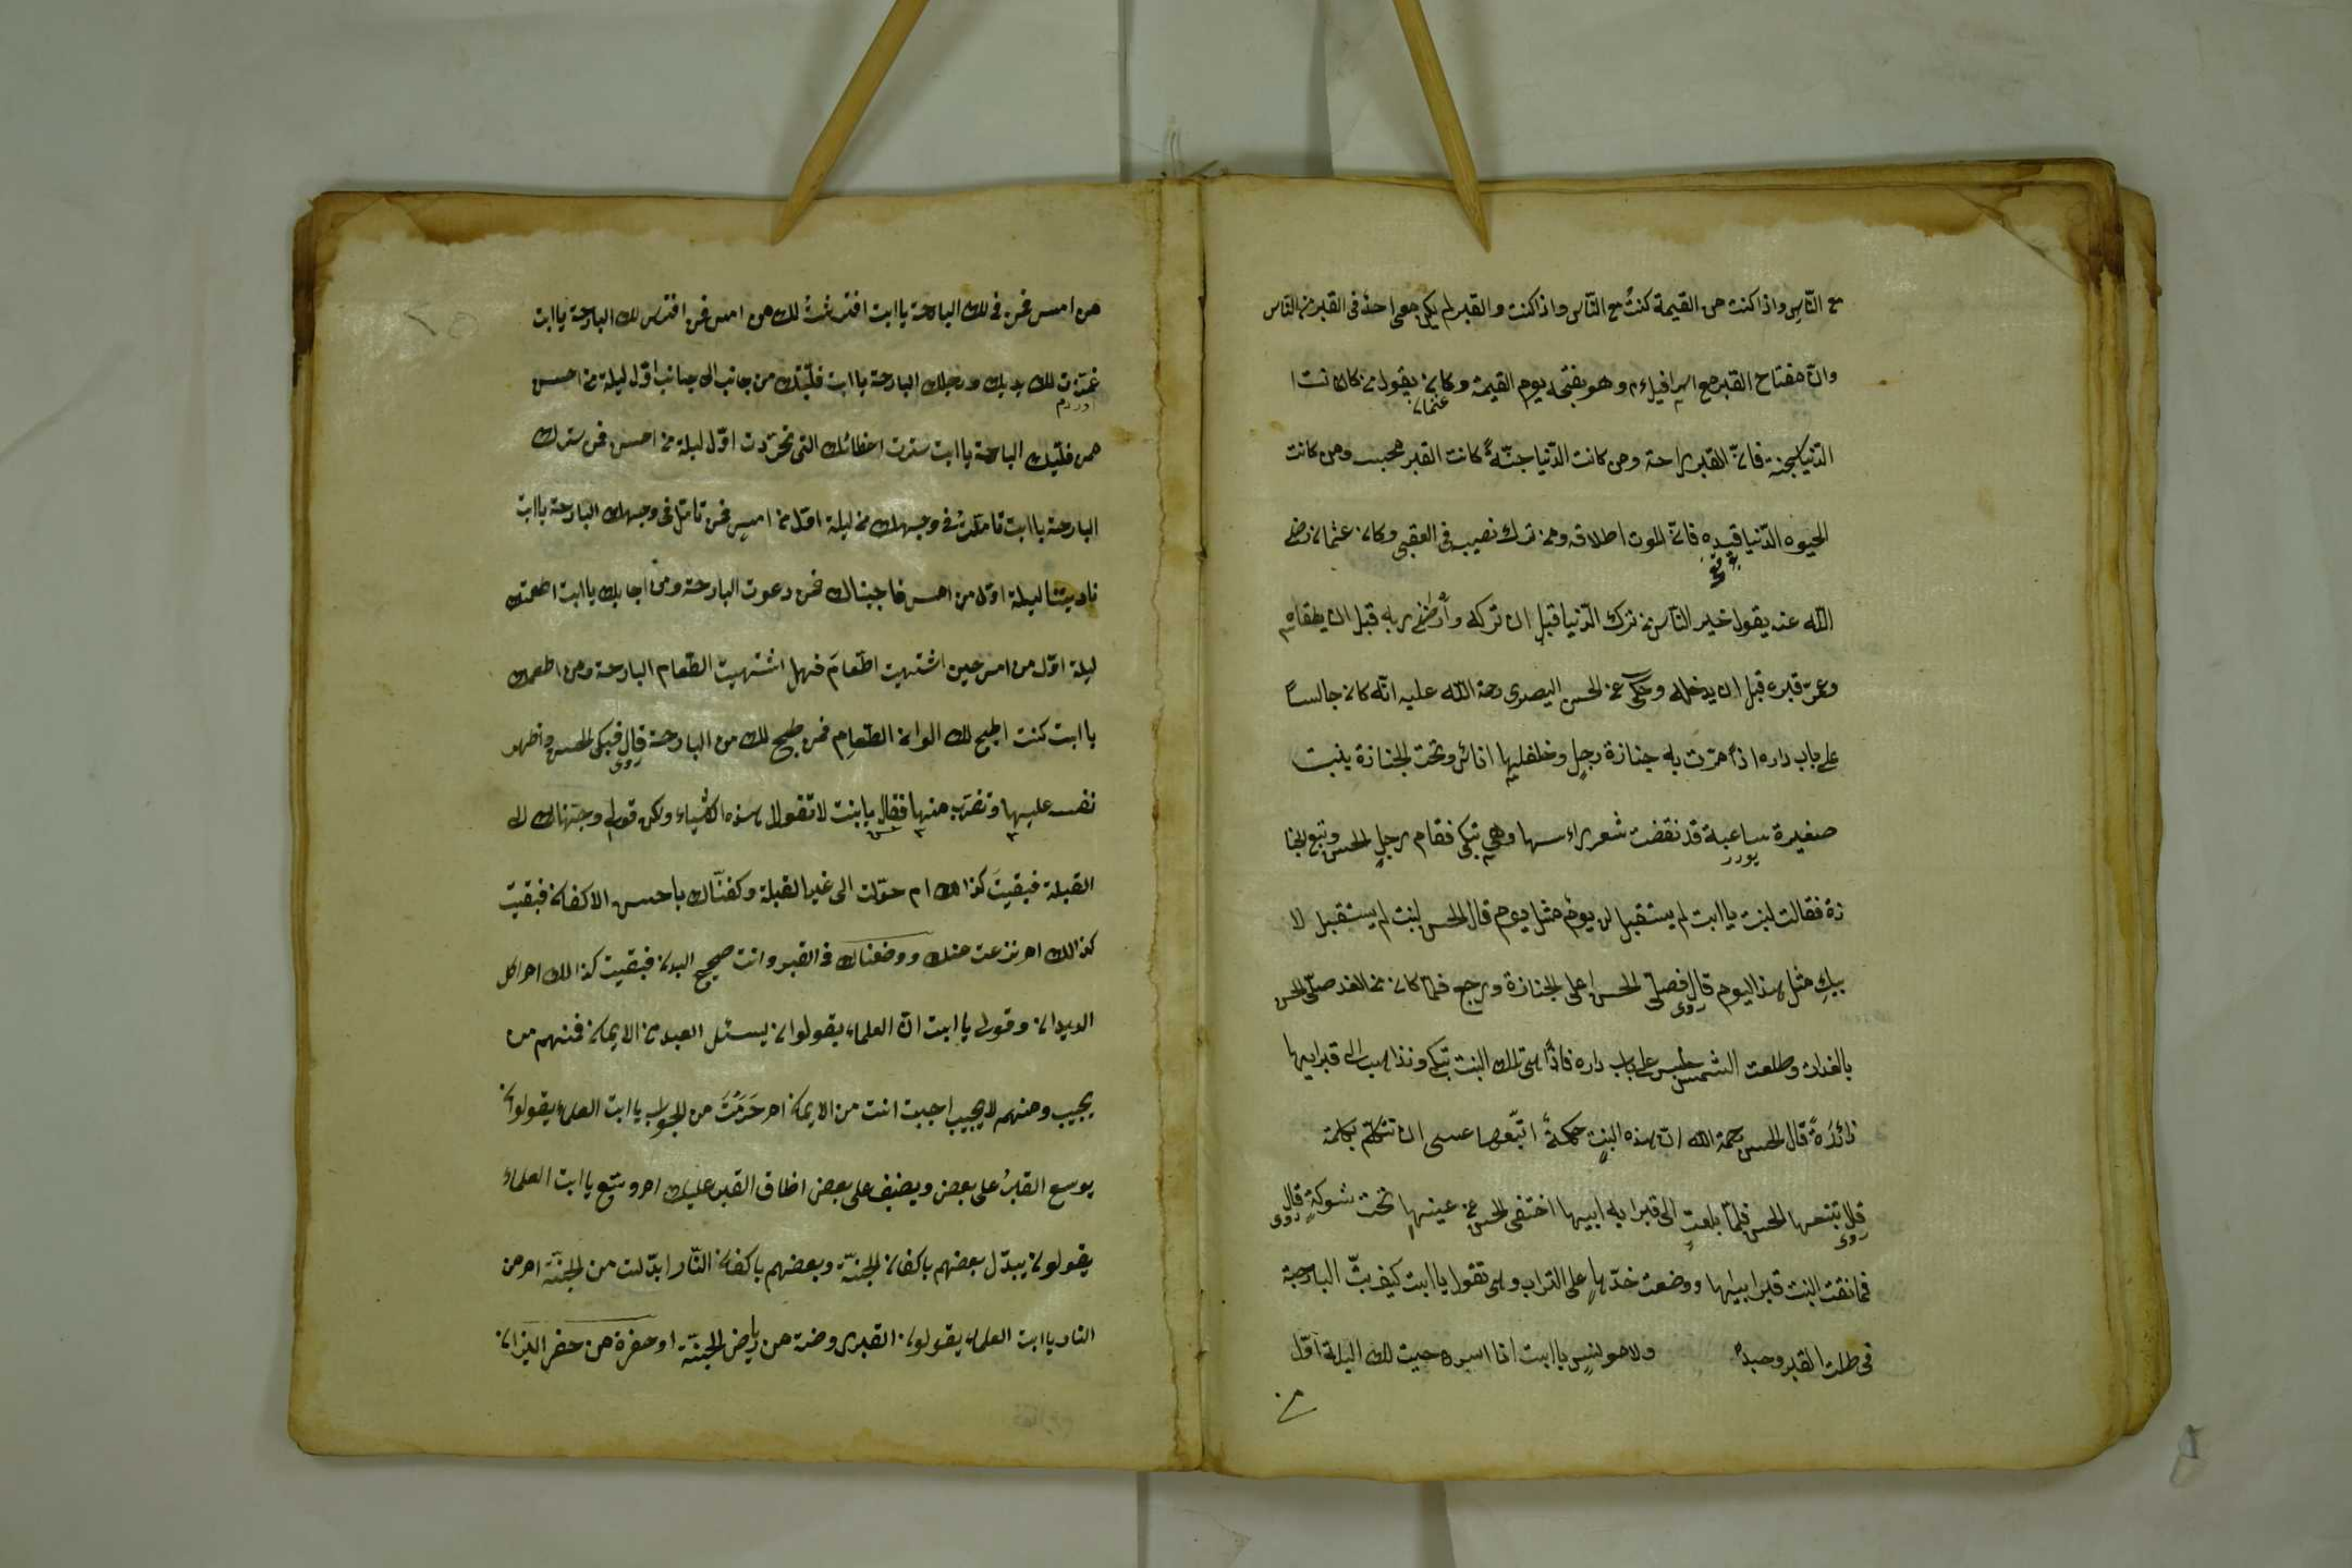 مع النّاسِ واذا كنت من القيمة كنتُ مع النّاس واذا كنت والقبر لم يكن معى احدٌ فى القبر من الناس
وانّ مفتاح القبر مع اسرافيلءم وهو يفتحه يوم القيمة وكان يقول من كان نت ا
عثمان
الدّنيا سجنه فانّ القبر راحة ومن كانت الدّنيا جنّةً كانت القبر محبسه ومن كانت
الحيوه الدّنيا قيده فانّ الموت اطلاقه ومن ترك نصيبه فى العقبى وكان عثمان رضى
الله عنه يقول خير النّاس من ترك الدّنيا قبل ان تركه وأرضٰى ربه قبل ان يلقاه
وعمرّ قبره قبل ان يدخله وحكى عن الحسن البصرى رحمة الله عليه انّه كان جالساً
على باب داره اذاً مرّت به جنازة رجلٍ وخلفليها اناثى وتحت الجنازة ينبت
صغيرة ساعية قد نقضت شعر راءسها وهى تبكى فقام رجلٍ الحسن وتبع الجنا
يورر
زة فقالت لبنت ياابت لم يستقبل لى يومٌ مثل يوم قال الحسن لبنت لم يستقبل لا
بيكِ مثل هذا اليوم قال فصلّى الحسن على الجنازة ورجع فلمّا كان من الغد صلّى الحسن
روى
بالغدات وطلعت الشمس جلس على باب داره فاذاً هى تلك البنت تبكى وتذاهب الى قبر ابيها
زائدةً قال الحسن رحمة الله ان هذه البنت حكمةً اتبّعها عسى ان تتكلّم بكلمة
قال يتبعها الحسن فلمّا بلغت الى قبر ابه ابيها اختفى الحسن عن عينها تحت شوكةٍ قال
روى
روى
فعانقت البنت قبر ابيها ووضعت خدّها على التراب وهى تقول ياابت كيف بتّ البارحة
فى ظلت القبر وحيداً ولا مونسٍ ياابت انا اسره جيت لك اليلة اوّل
من
من امس فمن فى لك البارحة ياابت افترشتُ لك من امس فمن افترش لك البارحة ياابت
غمّزت لك يديك ورجلك البارحة ياابت قلّبتك من جانب الى جانب اوّل ليلة من امس
اوردم
فمن قلّبك البارحة ياابت سترت اعضائك التى تجرّدت اوّل ليلة من امس فمن سترك
البارحة ياابت تامّلتُ فى وجهك من ليلة اوّل من امس فمن تامّل فى وجهك البارحة ياابت
ناديتنا ليلة اوّل من امس فاجبناك فمن دعوت البارحة ومن اجابك ياابت اطعمتك
ليلة اوّل من امس حين اشتهيت اطّعامَ فهل اشتهيت الطّعام البارحة ومن اطعمك
ياابت كنت اطبخ لك الوان الطّعامِ فمن طبخ لك من البارحة قال فبكى الحسن واظهر
روى
نفسه عليها وتقرّب منها فقال يابنت لا تقول هذه الاشياء ولكن قولى وجّهناك الى
القبلة فبقيتَ كذالك ام حوّلت الى غير القبلة وكفنّاك باحسن الاكفان فبقيت
كذالك ام نزعت عنك ووضعناك فى القبر وانت صحيح البدن فبقيت كذالك ام اكل
الديدان وقولى ياابت انّ العلماء يقولوان يسئل العبد من الايمان فمنهم من
يجيب ومنهم لا يجيب اجبت انت من الايمان ام حَرَمْتَ من الجواب ياابت العلماء يقولوان
يوسع القبرُ على بعض ويضيف على بعض اضاق القبر عليك ام وسّع ياابت العلماء
يقولون يبدّل بعضهم باكفان الجنّة وبعضهم باكفان النّار ابدّلت من الجنّة ام من
النار ياابت العلماء يقولون القبر روضة من رياض الجنّة او حفرة من حفر النيران